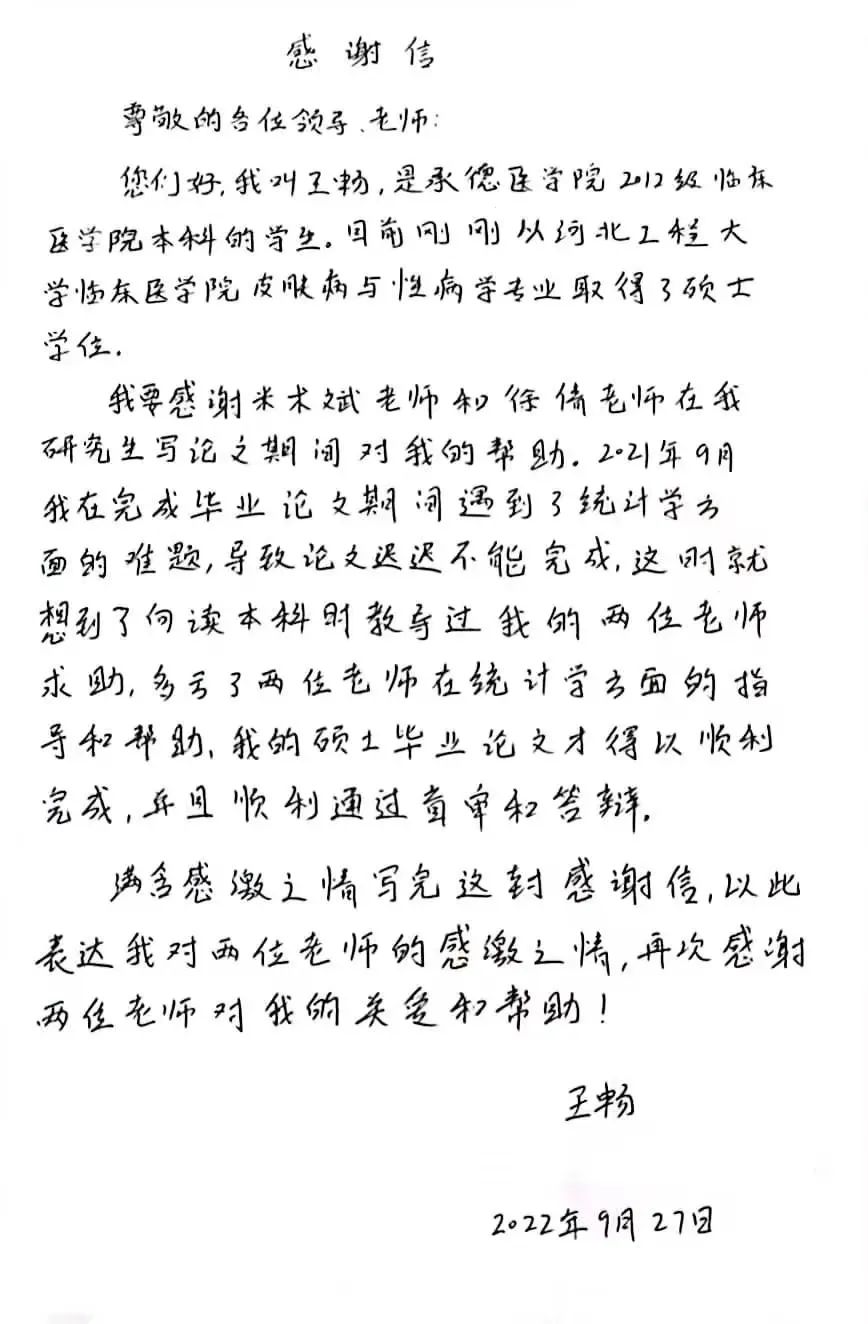 感谢信
尊敬的各位领导、老师：
您们好，我叫王畅，是承德医学院2012级临床
医学院本科的学生。目前刚刚以河北工程大
学临床医学院皮肤病与性病学专业取得了硕士
学位．
我要感谢米术斌老师和徐倩老师在我
研究生写论文期间对我的帮助．2021年9月
我在完成毕业论文期间遇到了统计学方
面的难题，导致论文迟迟不能完成，这时就
想到了向读本科时教导过我的两位老师
求助，多亏了两位老师在统计学方面的指
导和帮助，我的硕士毕业论文才得以顺利
完成，并且顺利通过盲审和答辩．
满含感激之情写完这封感谢信，以此
表达我对两位老师的感激之情，再次感谢
两位老师对我的关爱和帮助！
王畅
2022年9月27日